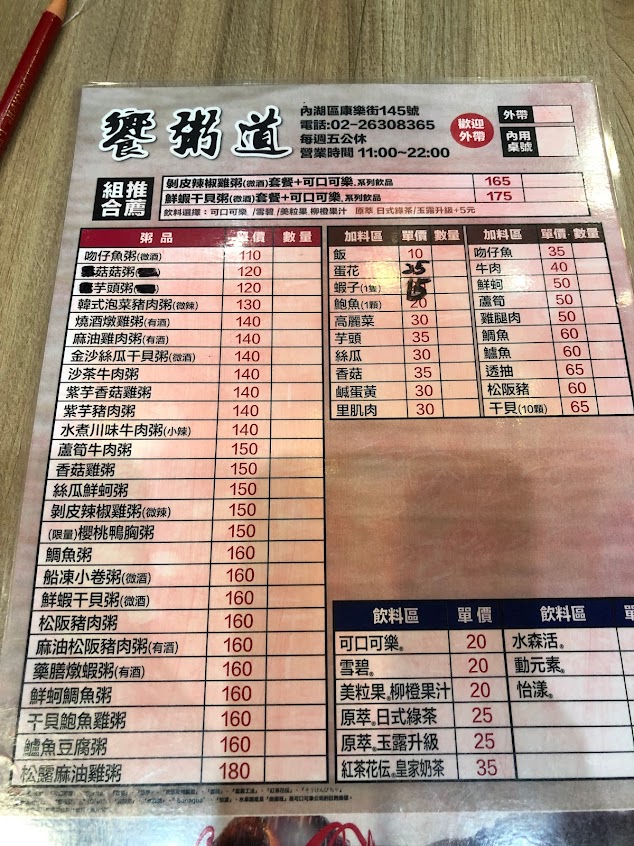 饗粥道
內湖區康樂街145號
電話:02-26308365
每週五公休
營業時間 11:00~22:00
歡迎外帶
外帶
內用桌號
推薦組合
剝皮辣椒雞粥(微酒)套餐+可口可樂®系列飲品 165
鮮蝦干貝粥(微酒)套餐+可口可樂®系列飲品 175
飲料選擇:可口可樂 /雪碧 /美粒果 柳橙果汁 原萃 日式綠茶/玉露升級+5元
粥品 單價 數量
吻仔魚粥(微酒) 110
菇菇粥 120
芋頭粥 120
韓式泡菜豬肉粥(微辣) 130
燒酒燉雞粥(有酒) 140
麻油雞肉粥(有酒) 140
金沙絲瓜干貝粥(微酒) 140
沙茶牛肉粥 140
紫芋香菇雞粥 140
紫芋豬肉粥 140
水煮川味牛肉粥(小辣) 140
蘆筍牛肉粥 150
香菇雞粥 150
絲瓜鮮蚵粥 150
剝皮辣椒雞粥(微辣) 150
(限量)櫻桃鴨胸粥 150
鯛魚粥 160
船凍小卷粥(微酒) 160
鮮蝦干貝粥(微酒) 160
松阪豬肉粥 160
麻油松阪豬肉粥(有酒) 160
藥膳燉蝦粥(有酒) 160
鮮蚵鯛魚粥 160
干貝鮑魚雞粥 160
鱸魚豆腐粥 160
松露麻油雞粥 180
加料區 單價 數量
飯 10
蛋花 25
蝦子(1隻) 15
鮑魚(1顆) 20
高麗菜 30
芋頭 35
絲瓜 30
香菇 35
鹹蛋黃 30
里肌肉 30
加料區 單價 數量
吻仔魚 35
牛肉 40
鮮蚵 50
蘆筍 50
雞腿肉 50
鯛魚 60
鱸魚 60
透抽 65
松阪豬 60
干貝(10顆) 65
飲料區 單價
可口可樂® 20
雪碧® 20
美粒果®柳橙果汁 20
原萃®日式綠茶 25
原萃®玉露升級 25
紅茶花伝®皇家奶茶 35
飲料區 單
水森活®
動元素®
怡漾®